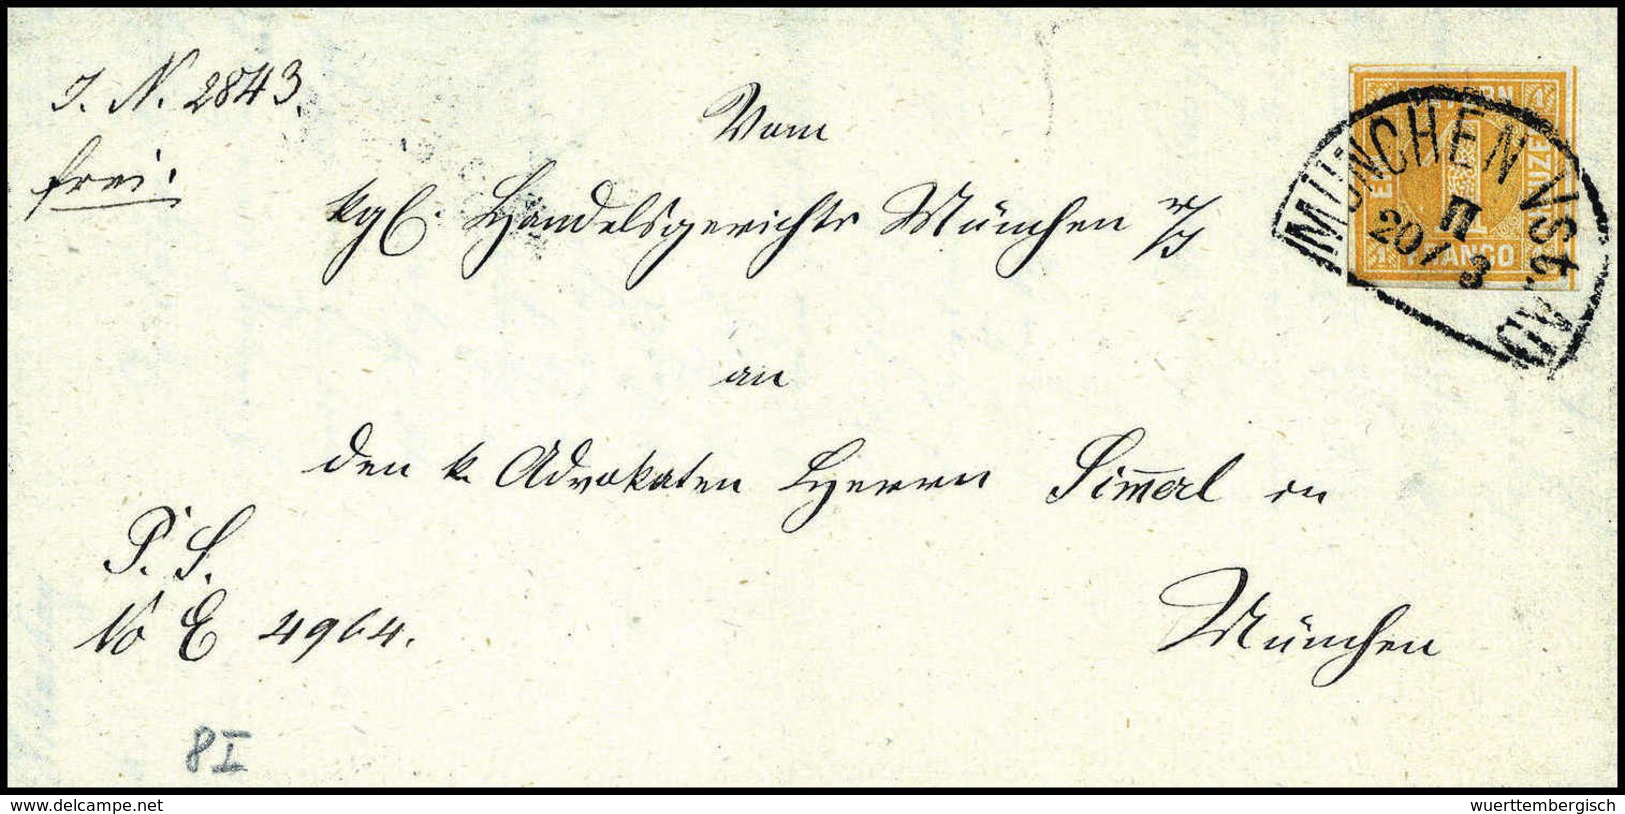 J. N. 2843.
frei.
Vom
kgl. Handelsgerichts München r/J
an
den k. Advokaten Herrn Simerl in
München
P. S.
No E 4964.
8 I
BAYERN
1 KREUZER
FRANCO
MÜNCHEN II
20/3
delcampe.net
wuerttembergisch